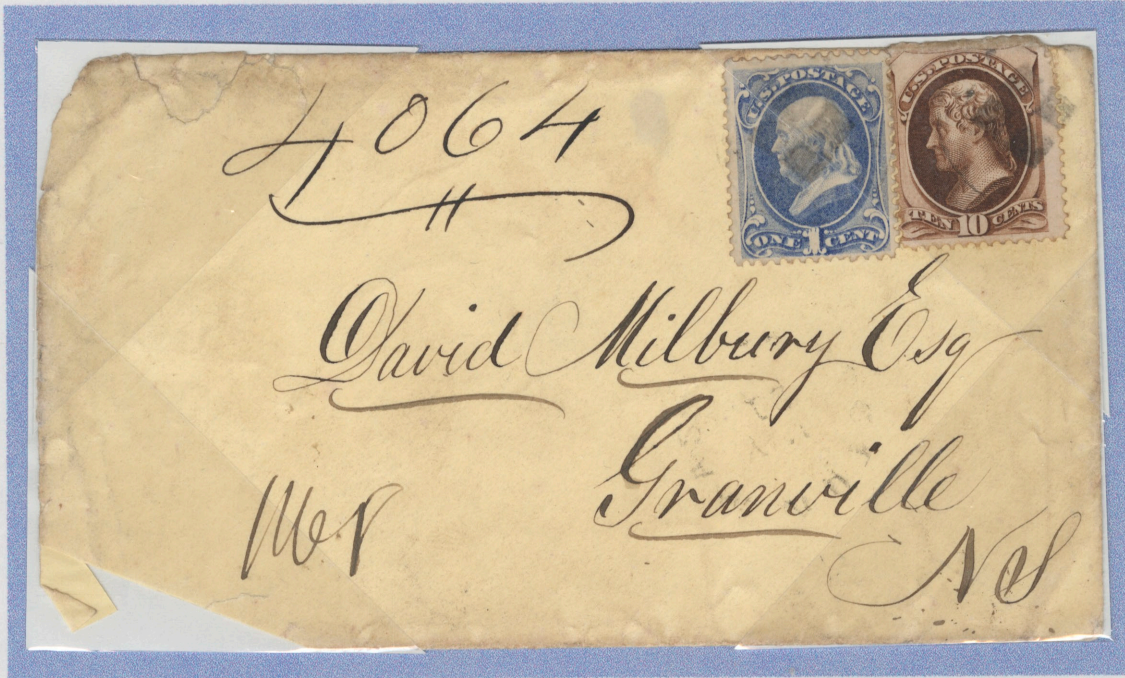 4064
U.S. POSTAGE
ONE 1 CENT
U.S. POSTAGE
TEN 10 CENTS
David Milbury Esq
Granville
NS